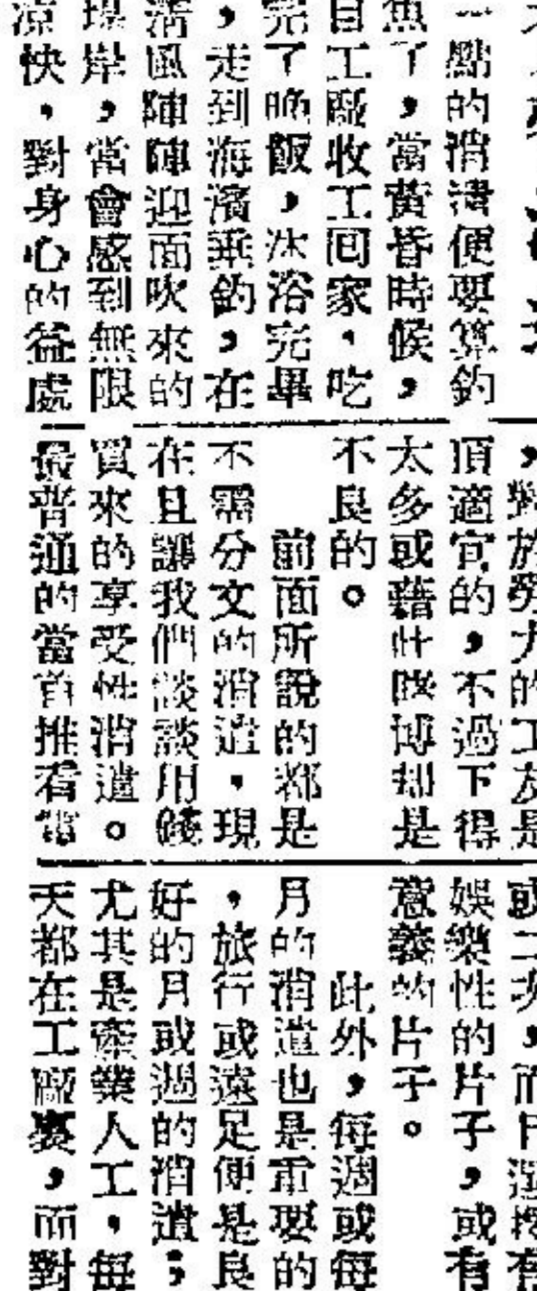 一點的消遣便要算釣
魚了，當黃昏時候，
自工廠收工回家，吃
完了晚飯，沐浴完畢
，走到海濱垂釣，在
清風陣陣迎面吹來的
堤岸，當會感到無限
涼快，對身心的益處
，對於勞力的工友是
頂適宜的，不過下得
太多或藉此賭博却是
不良的。
前面所說的都是
不需分文的消遣，現
在且讓我們談談用錢
買來的享受性消遣。
最普通的當首推看電
或二次，而且選擇有
娛樂性的片子，或有
意義的片子。
此外，每週或每
月的消遣也是重要的
，旅行或遠足便是良
好的月或週的消遣；
尤其是產業人工，每
天都在工廠裏，而對